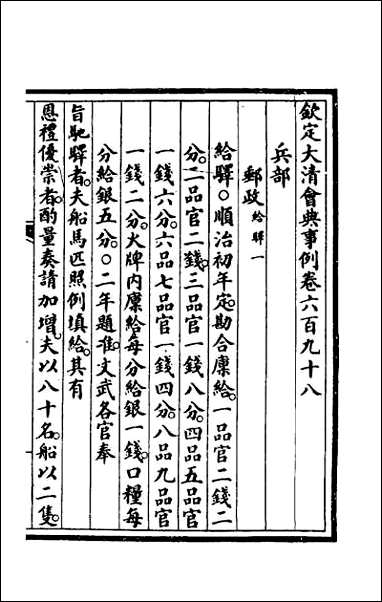 欽定大清會典事例卷六百九十八
兵部
郵政給驛一
給驛○順治初年定勘合廩給一品官二錢二
分。二品官二錢三品官一錢八分。四品五品官
一錢六分。六品七品官一錢四分。八品九品官
一錢二分。火牌內廩給每分給銀一錢。口糧每
分給銀五分。○二年題准。文武各官奉
旨馳驛者。夫船馬匹照例填給。其有
恩禮優崇者。酌量奏請加增。夫以八十名。船以二隻。